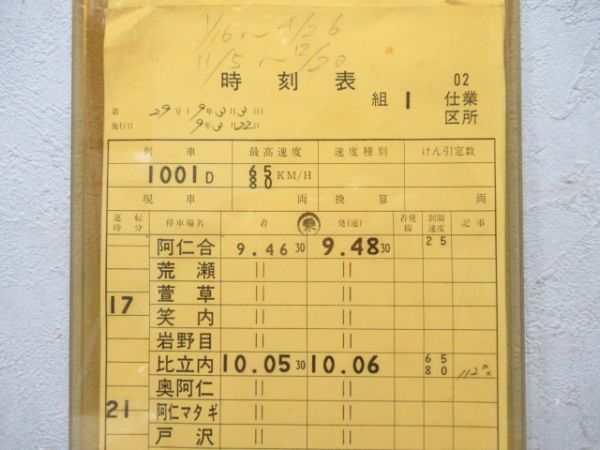 1/16〜4/26
11/5〜12/20
時刻表 02
組 1 仕業
区所
第 29号 (9年3月3日)
施行日 9年3月22日
列車 最高速度 速度種別 けん引定数
1001D 65 KM/H
80
現車 両 換算 両
運転 停車場名 着 発(通) 着発 制限 記事
時分 線 速度
阿仁合 9.46 30 9.48 30 25
荒瀬 〃 〃
萱草 〃 〃
17
笑内 〃 〃
岩野目 〃 〃
比立内 10.05 30 10.06 65
80
奥阿仁 〃 〃
21 阿仁マタギ 〃 〃
戸沢 〃 〃